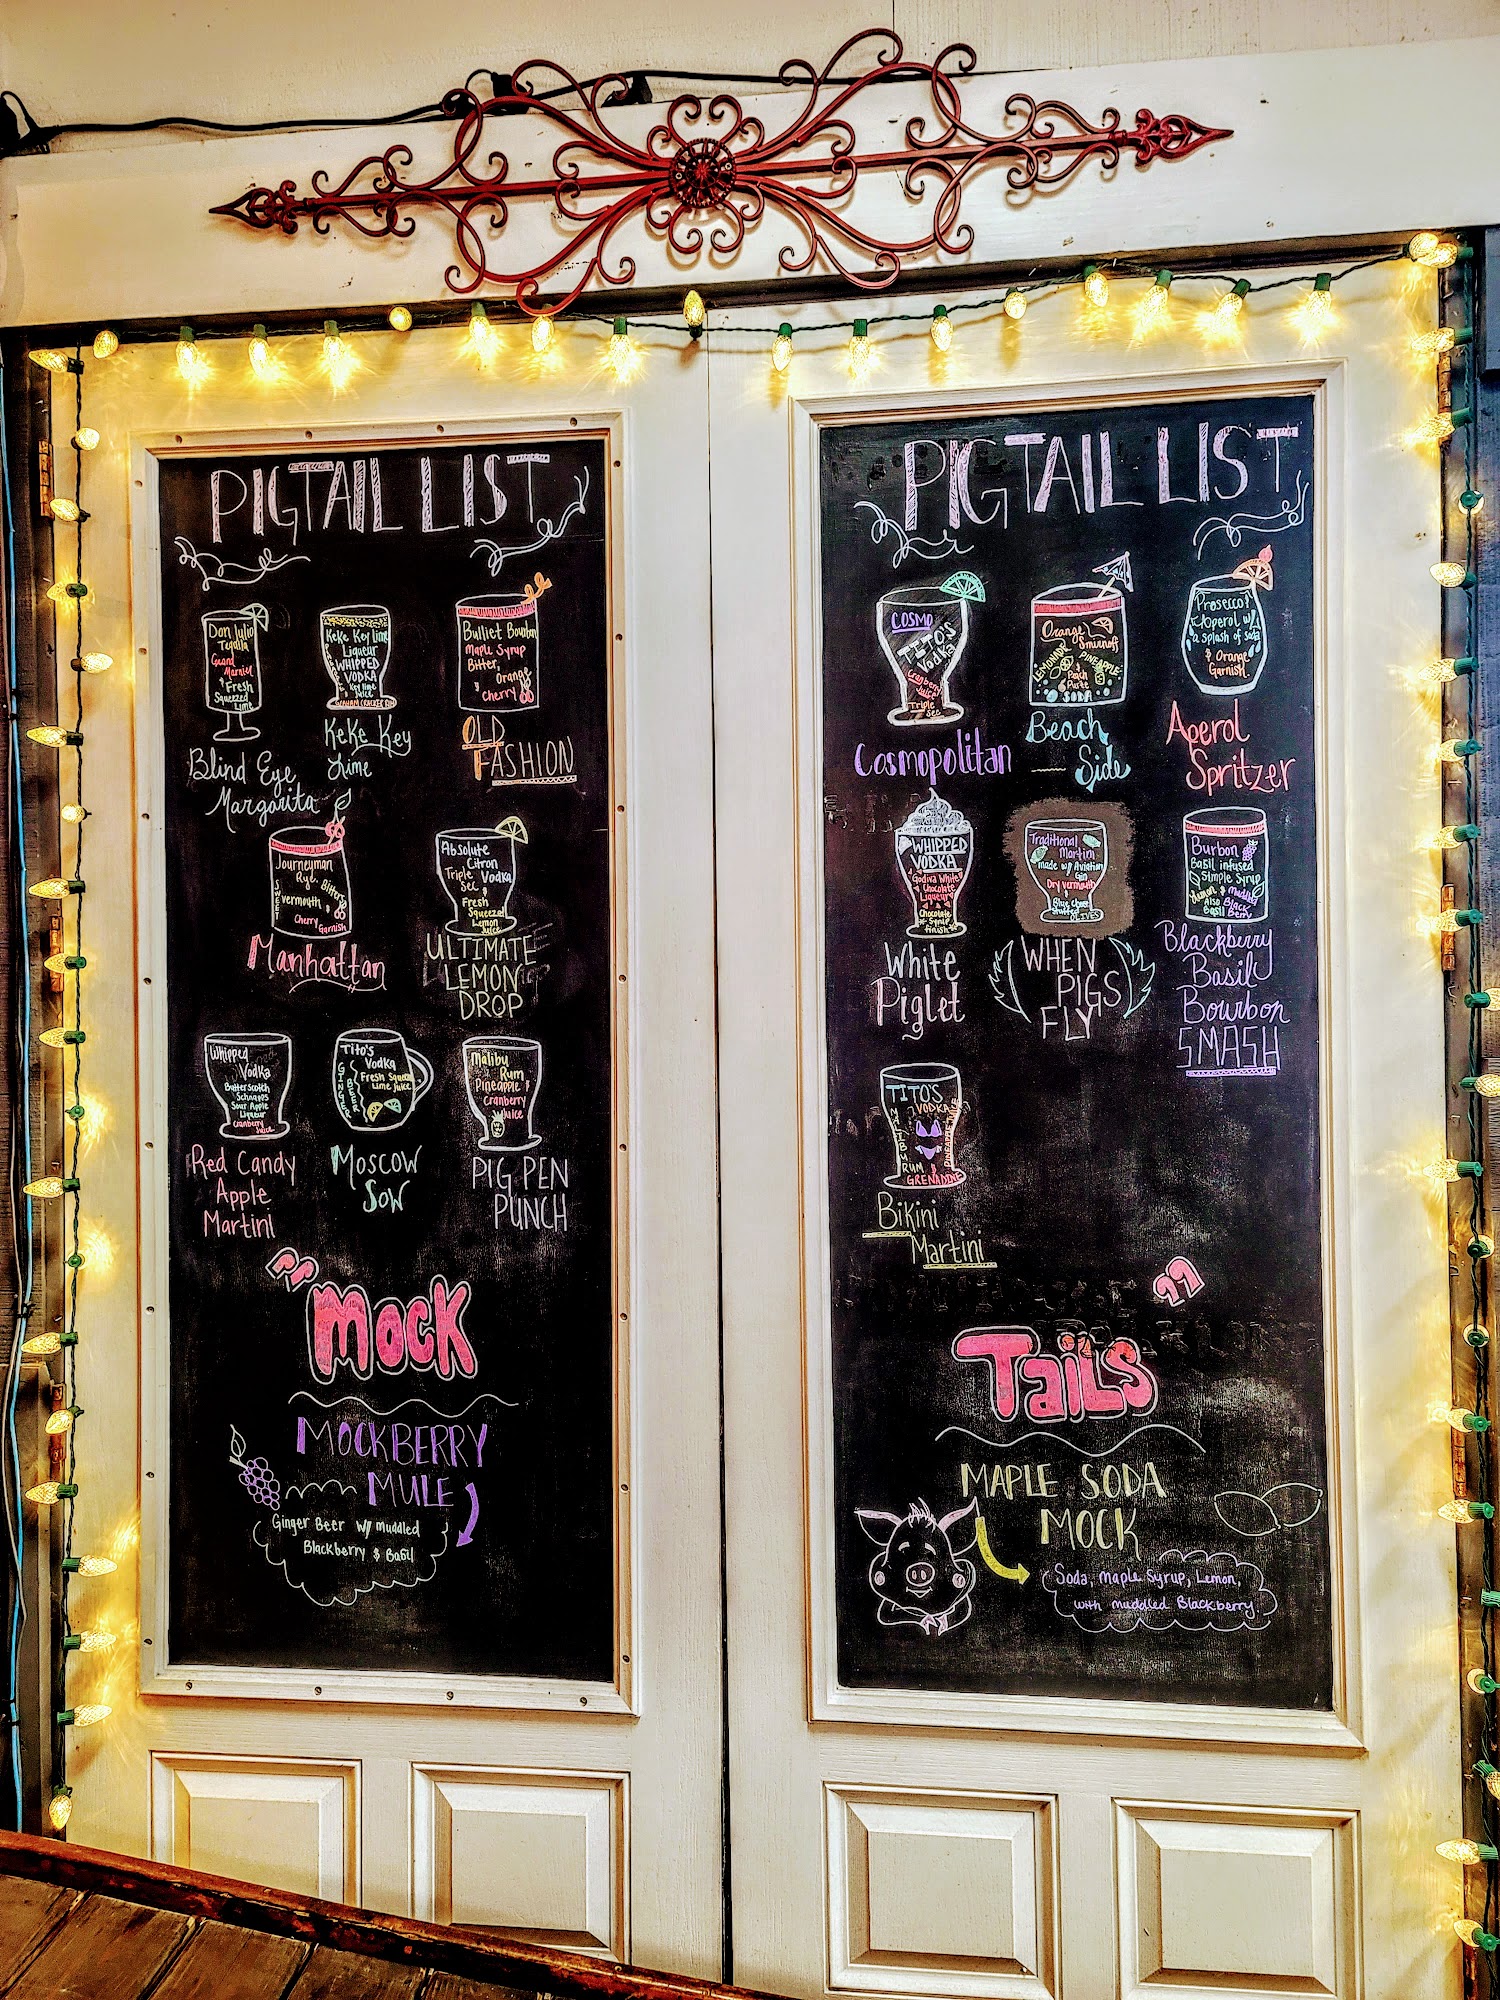 PIGTAIL LIST
Don Julio
Tequila
Grand
Marnier
& Fresh
Squeezed
Lime
Blind Eye
Margarita
KeKe Key lime
Liqueur
WHIPPED
VODKA
Key lime
Juice
GRAHAM CRACKER RIM
KeKe Key
Lime
Bulliet Bourbon
Maple Syrup
Bitter,
Orange
& Cherry
OLD
FASHION
Journeyman
Rye,
Bitters
SWEET
vermouth &
Cherry
Garnish
Manhattan
Absolute
Citron
Vodka
Triple
Sec &
Fresh
Squeezed
Lemon
Juice
ULTIMATE
LEMON
DROP
Whipped
Vodka
Butterscotch
Schnapps
Sour Apple
Liqueur
Cranberry
Juice
Red Candy
Apple
Martini
Tito's
Vodka
GINGER BEER
Fresh Squeez
Lime Juice
Moscow
Sow
Malibu
Rum
Pineapple &
Cranberry
Juice
PIG PEN
PUNCH
"Mock
MOCKBERRY
MULE
Ginger Beer w/ muddled
Blackberry & Basil
PIGTAIL LIST
COSMO
TITO'S
Vodka
Cranberry
Juice
Triple
Sec
Cosmopolitan
Orange
Smirnoff
LEMONADE
PINEAPPLE
Peach
Purée
SODA
Beach
Side
Prosecco &
Aperol w/
a splash of soda
& Orange
Garnish.
Aperol
Spritzer
WHIPPED
VODKA
Godiva White
Chocolate
Liqueur
Chocolate
Syrup
finish
White
Piglet
Traditional
Martini
made w/ Aviation
Gin
Dry vermouth
&
Blue cheese
stuffed
OLIVES
WHEN
PIGS
FLY
Burbon
Basil infused
Simple Syrup
Muddled
Black
Berry
Basil
Blackberry
Basil
Bourbon
SMASH
TITO'S
VODKA
MALIBU
RUM
PINEAPPLE JUICE
&
GRENADINE
Bikini
Martini
Tails"
MAPLE SODA
MOCK
Soda, Maple Syrup, Lemon,
with muddled Blackberry